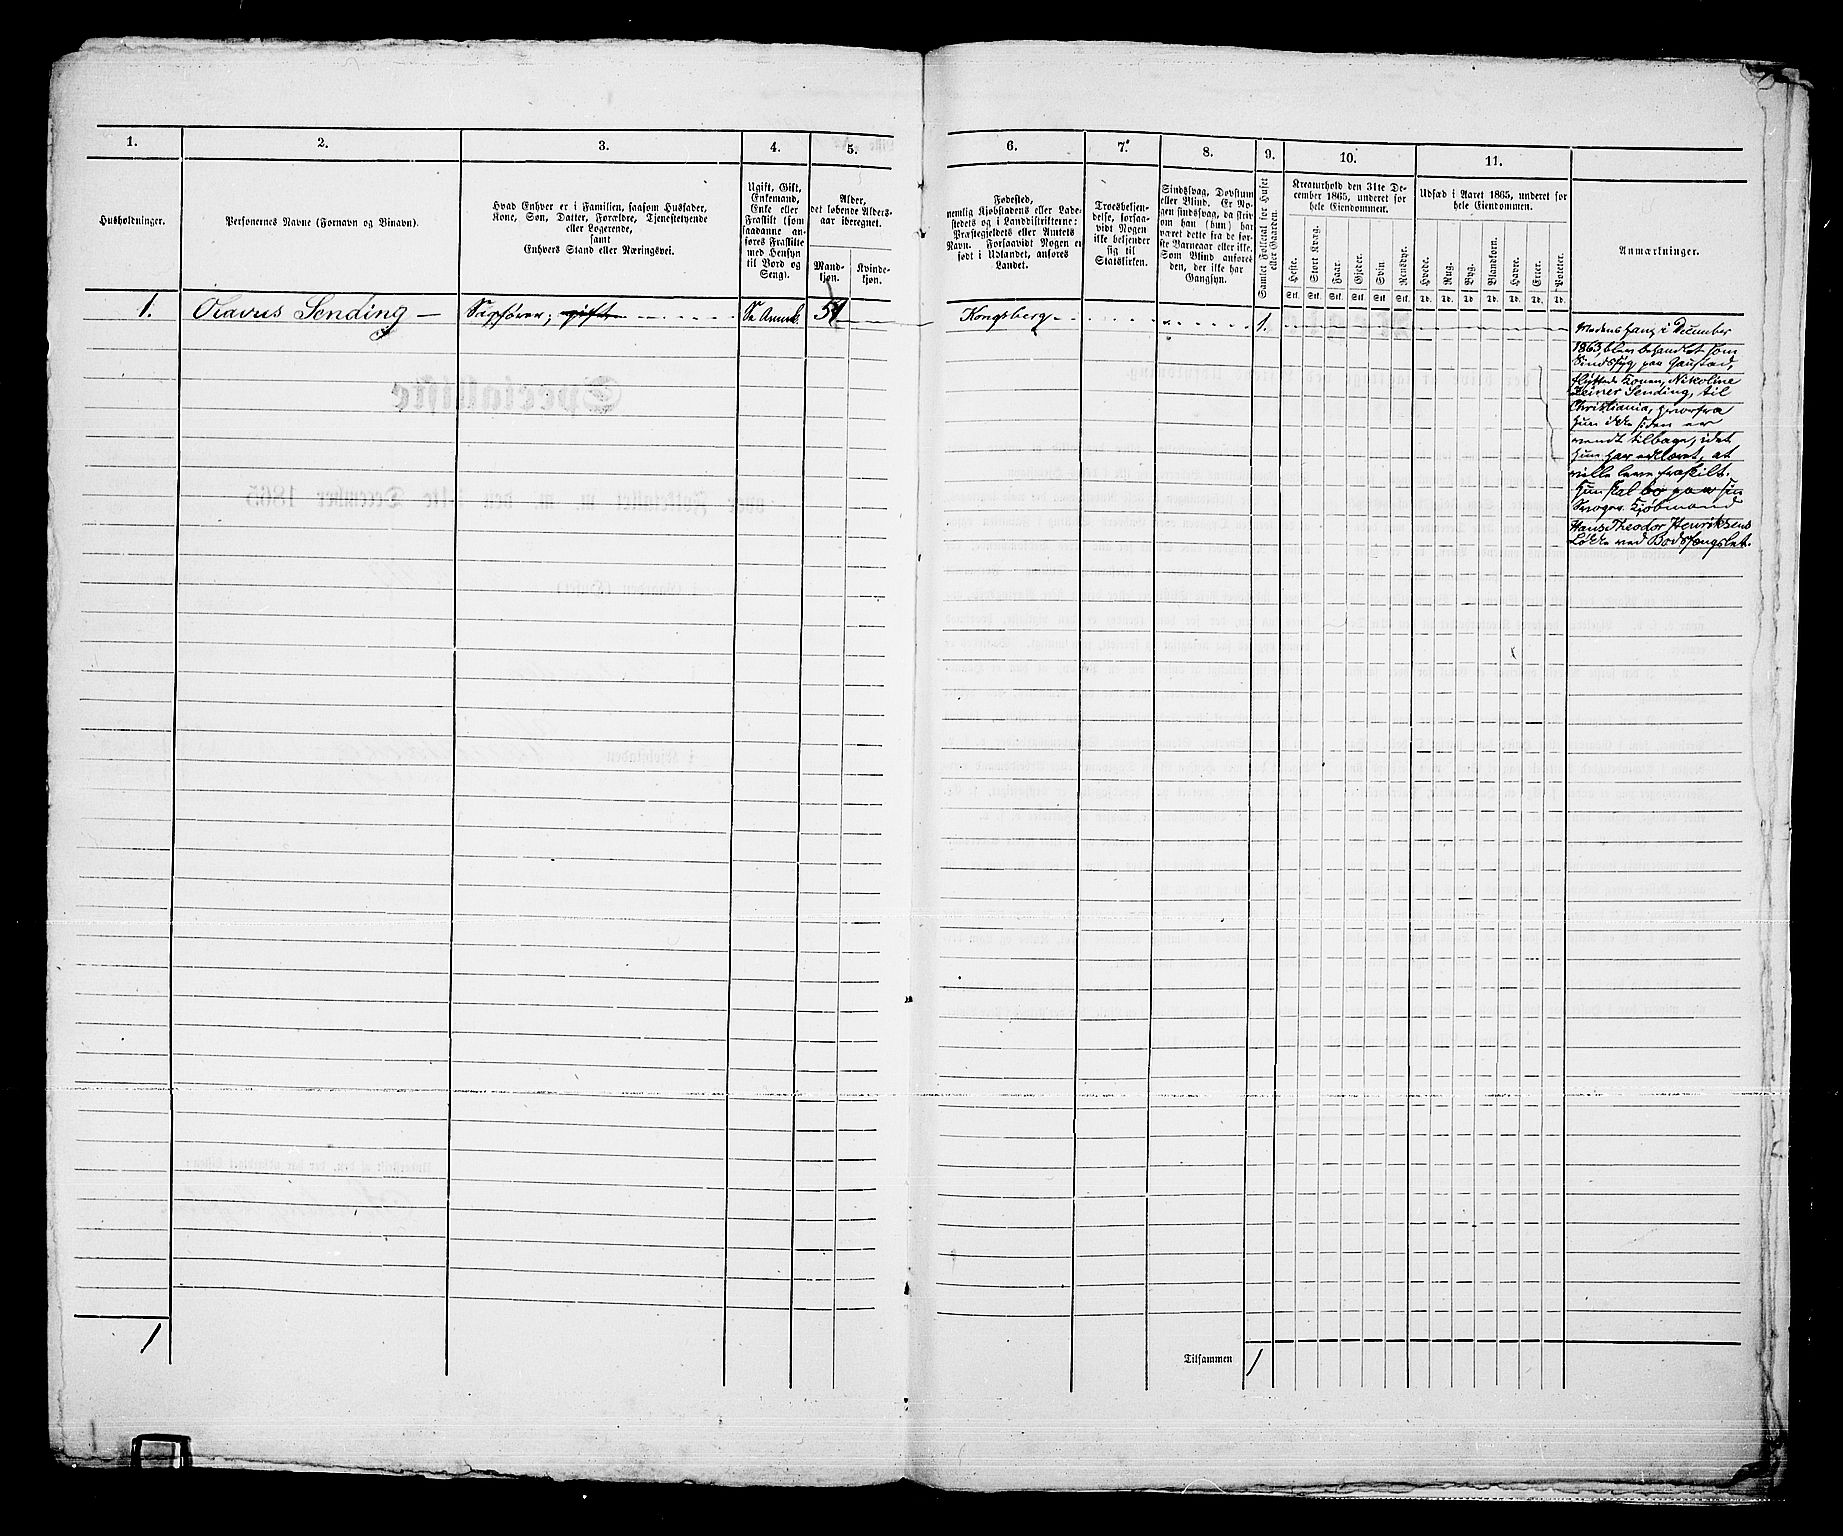 1.
2.
3.
4.
5.
6.
7.
8.
9.
10.
11.
Husholdninger.
Personernes Navne (Fornavn og Binavn).
Hvad Enhver er i Familien, saasom Husfader,
Kone, Søn, Datter, Forældre, Tjenestetyende
eller Logerende,
samt
Enhvers Stand eller Næringsvei.
Ugift, Gift,
Enkemand,
Enke eller
Fraskilt (som
saadanne an-
føres Fraskilte
med Hensyn
til Bord og
Seng).
Alder,
det løbende Alders-
aar iberegnet.
Mand-
kjøn.
Kvinde-
kjøn.
Fødested,
nemlig Kjøbstadens eller Lade-
stedets og i Landdistrikterne:
Præstegjeldets eller Amtets
Navn. Forsaavidt Nogen er
født i Udlandet, anføres
Landet.
Troesbekjen-
delse, forsaa-
vidt Nogen
ikke bekjender
sig til
Statskirken.
Sindssvag, Døvstum
eller Blind. Er No-
gen sindssvag, da skriv
om han (hun) har
været dette fra de før-
ste Barneaar eller ikke.
Som Blind anføres
den, der ikke har
Gangsyn.
Samlet Folketal for Huset
eller Gaarden.
Kreaturhold den 31te De-
cember 1865, underet for
hele Eiendommen.
Heste.
Stort Kvæg.
Faar.
Gjeder.
Svin.
Rensdyr.
Stk. Stk. Stk. Stk. Stk. Stk.
Udsæd i Aaret 1865, underet for
hele Eiendommen.
Hvede.
Rug.
Byg.
Blandkorn.
Havre.
Erter.
Poteter.
Td. Td. Td. Td. Td. Td. Td.
Anmærkninger.
1. Olavus Sending — Sagfører; gift Se Anmrk. 51 Kongsberg 1.
Medens han i December
1863 blev behandlet som
Sindssyg paa Gaustad,
flyttede Konen, Nikoline
Heiner Sending, til
Christiania, hvorfra
hun ikke siden er
vendt tilbage, idet
hun har erklæret, at
ville leve fraskilt.
Hun skal bo paa sin
Svoger Kjøbmand
Hans Theodor Henriksens
Løkke ved Bodsfængslet.
1
Tilsammen 1